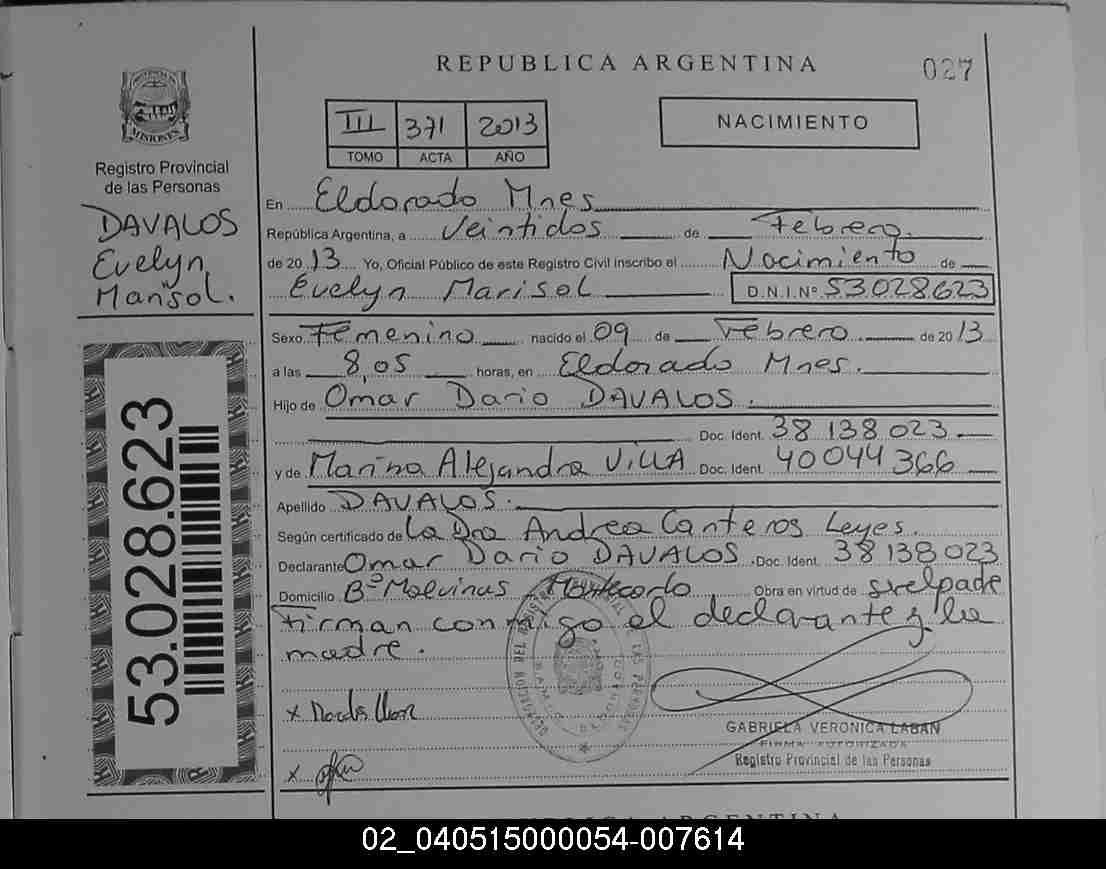 REPUBLICA ARGENTINA
027
MISIONES
Registro Provincial
de las Personas
DAVALOS
Evelyn
Marisol.
53.028.623
III 371 2013
TOMO ACTA AÑO
NACIMIENTO
En Eldorado Mnes
República Argentina, a Veintidos de Febrero.
de 2013 Yo, Oficial Público de este Registro Civil inscribo el Nacimiento de
Evelyn Marisol D.N.I.Nº 53.028.623
Sexo Femenino nacido el 09 de Febrero de 2013
a las 8,05 horas, en Eldorado Mnes.
Hijo de Omar Dario DAVALOS.
Doc. Ident. 38 138 023
y de Marina Alejandra VILLA Doc. Ident. 40044366
Apellido DAVALOS.
Según certificado de La Dra Andrea Canteros Leyes.
Declarante Omar Dario DAVALOS. Doc. Ident. 38138023
Domicilio Bº Malvinas Montecarlo Obra en virtud de
firman conmigo el declarante y la
madre.
x
x
GABRIELA VERONICA LABAN
FIRMA AUTORIZADA
Registro Provincial de las Personas
REPUBLICA ARGENTINA
02_040515000054-007614